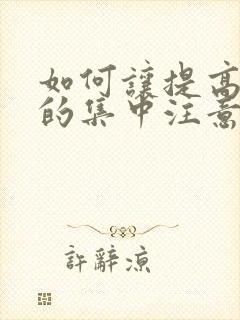 如何讓提高
的集中注意
許辭涼